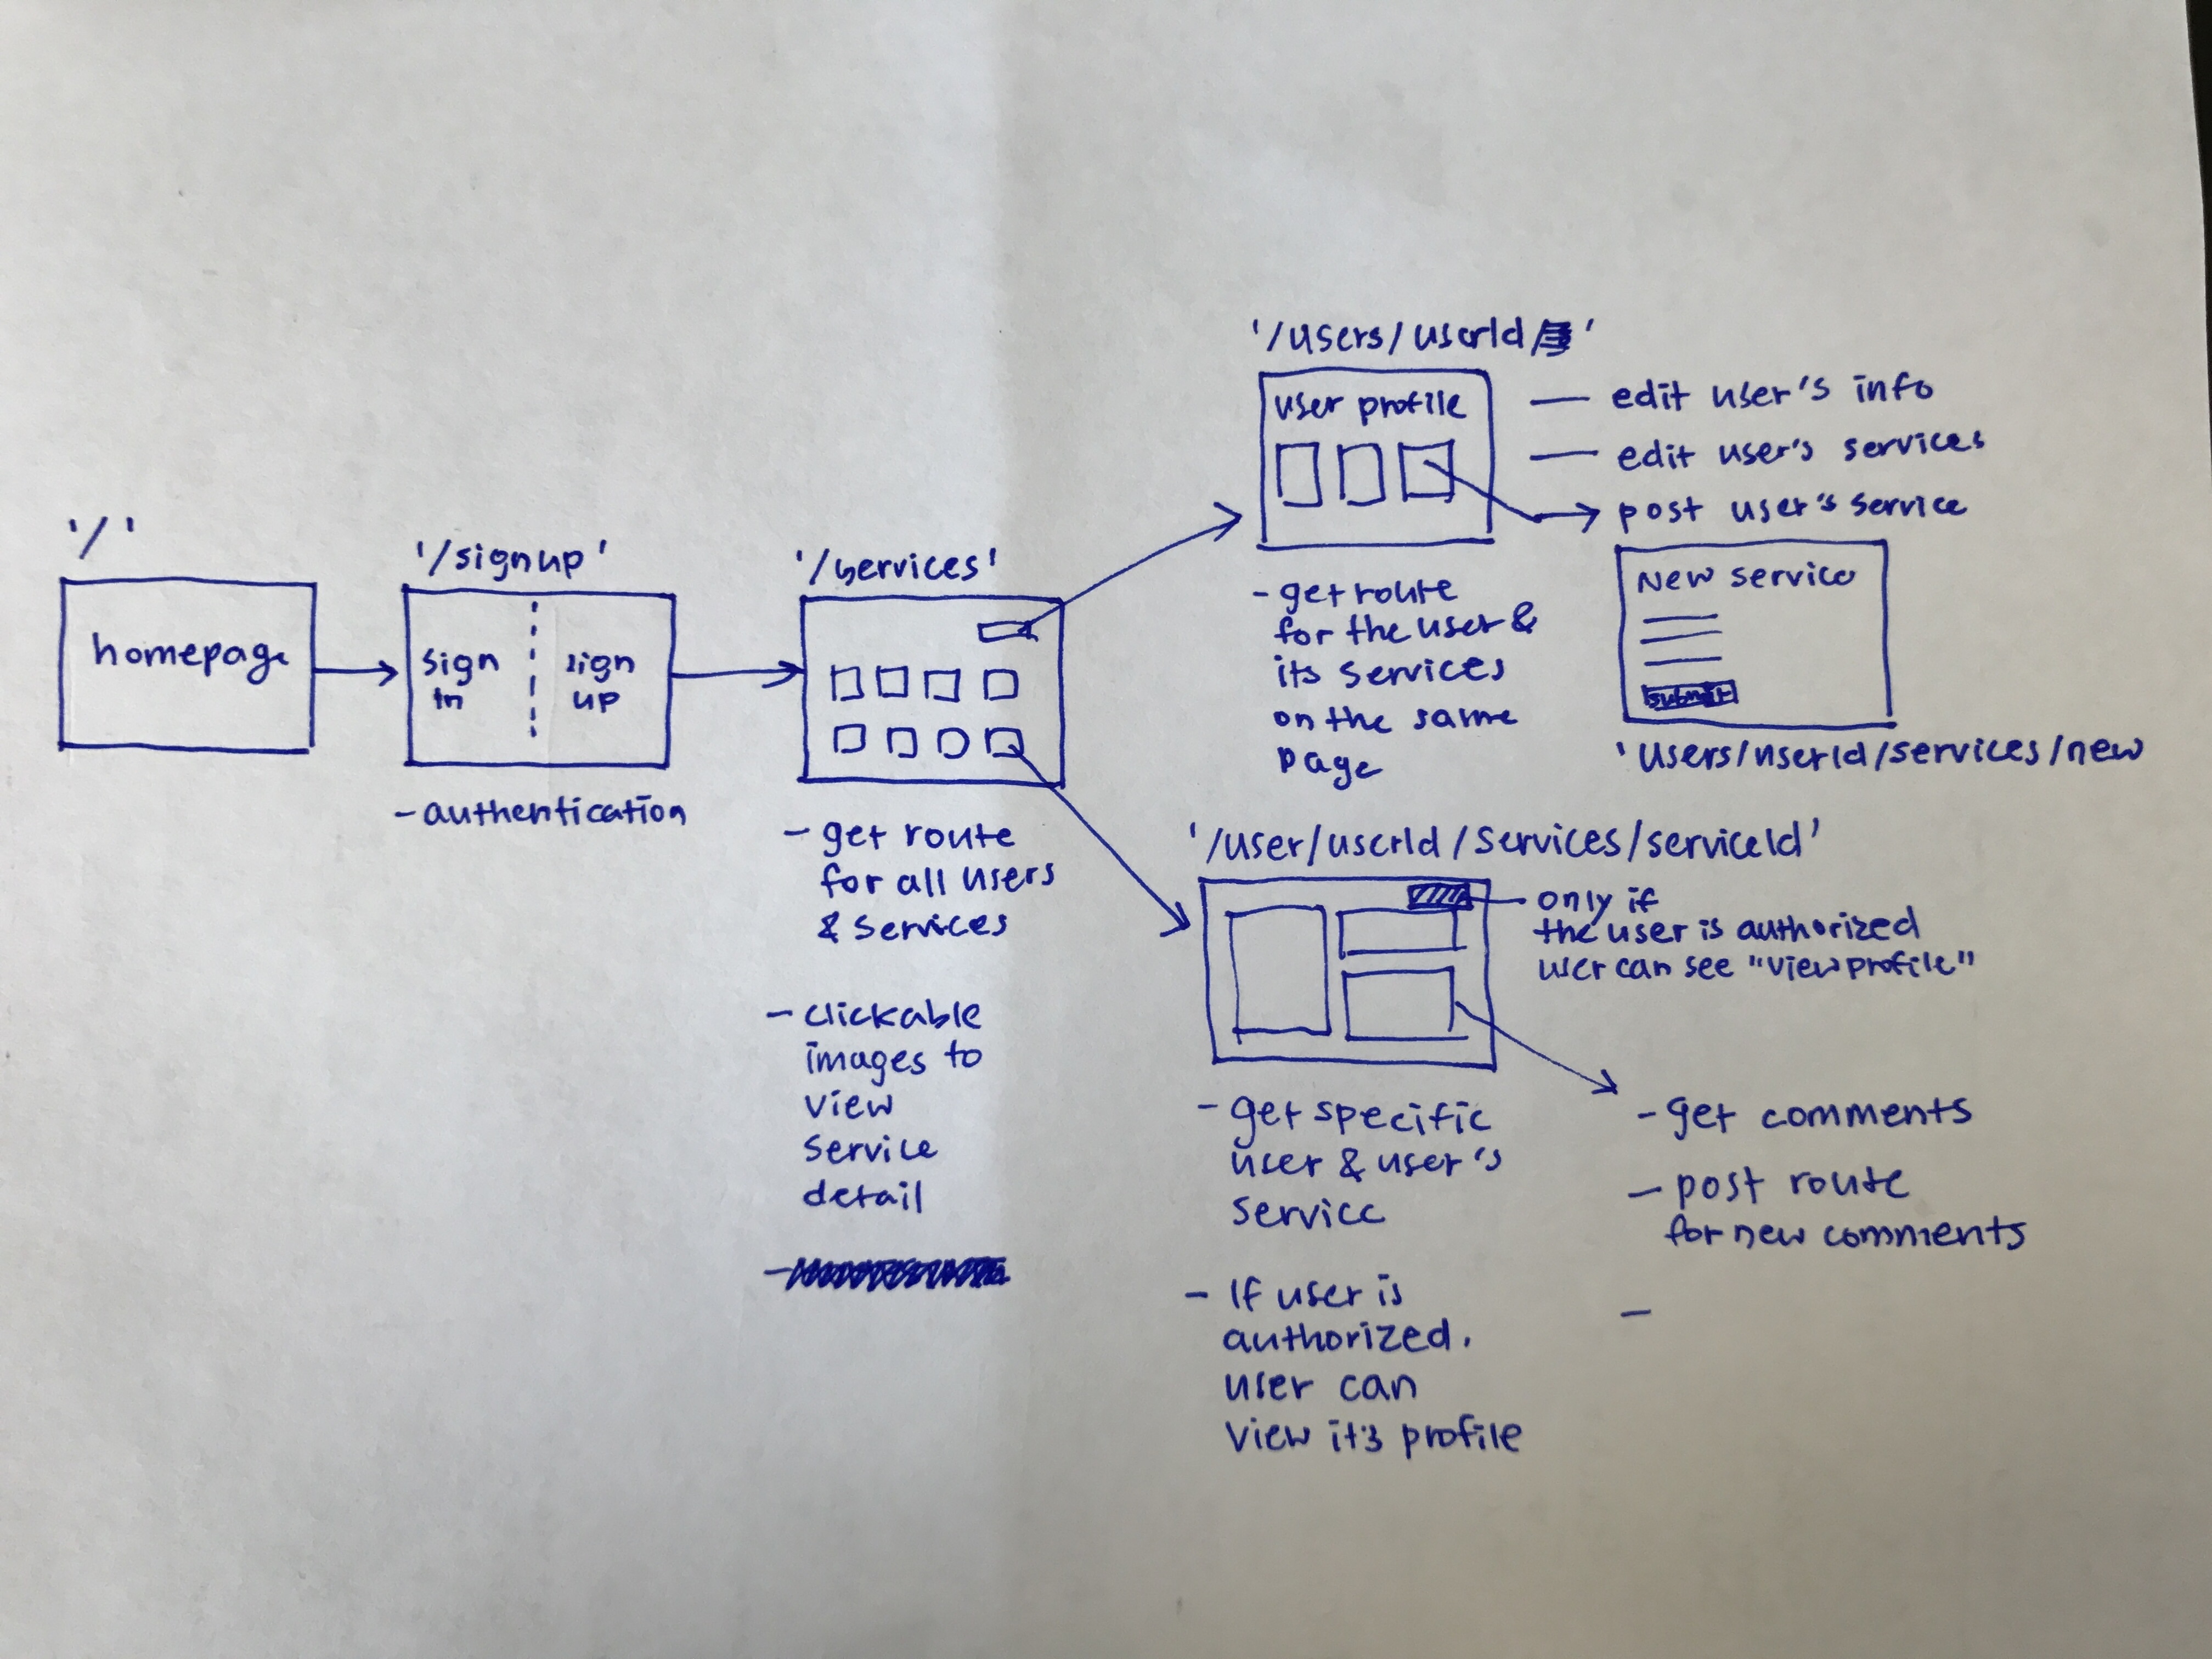 '/'
homepage
'/signup'
sign
in
sign
up
- authentication
'/services'
- get route
for all users
& services
- clickable
images to
view
service
detail
'/users/userId/ '
user profile
— edit user's info
— edit user's services
post user's service
- get route
for the user &
its services
on the same
page
New service
submit
'users/userId/services/new
'/user/userId/services/serviceId'
- only if
the user is authorized
user can see "view profile"
- get specific
user & user's
service
- If user is
authorized.
user can
view it's profile
- get comments
- post route
for new comments
-